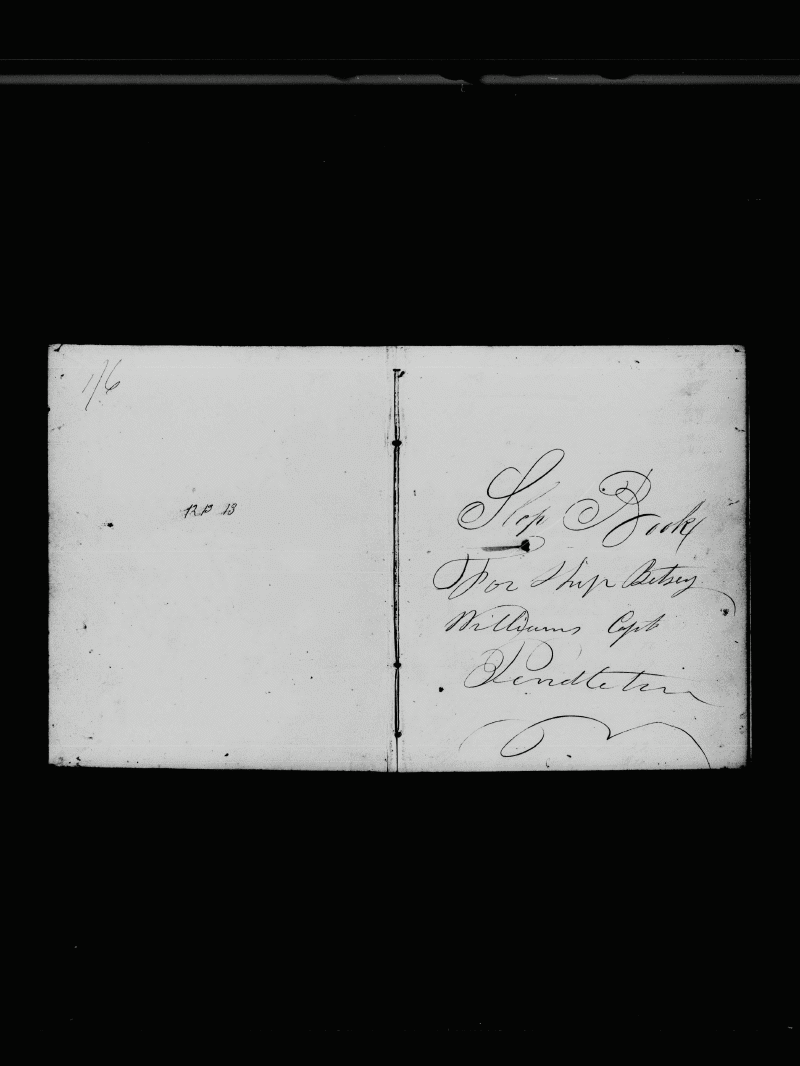 1/6
Slop Book
For Ship Betsey
Williams Capt
Pendleton